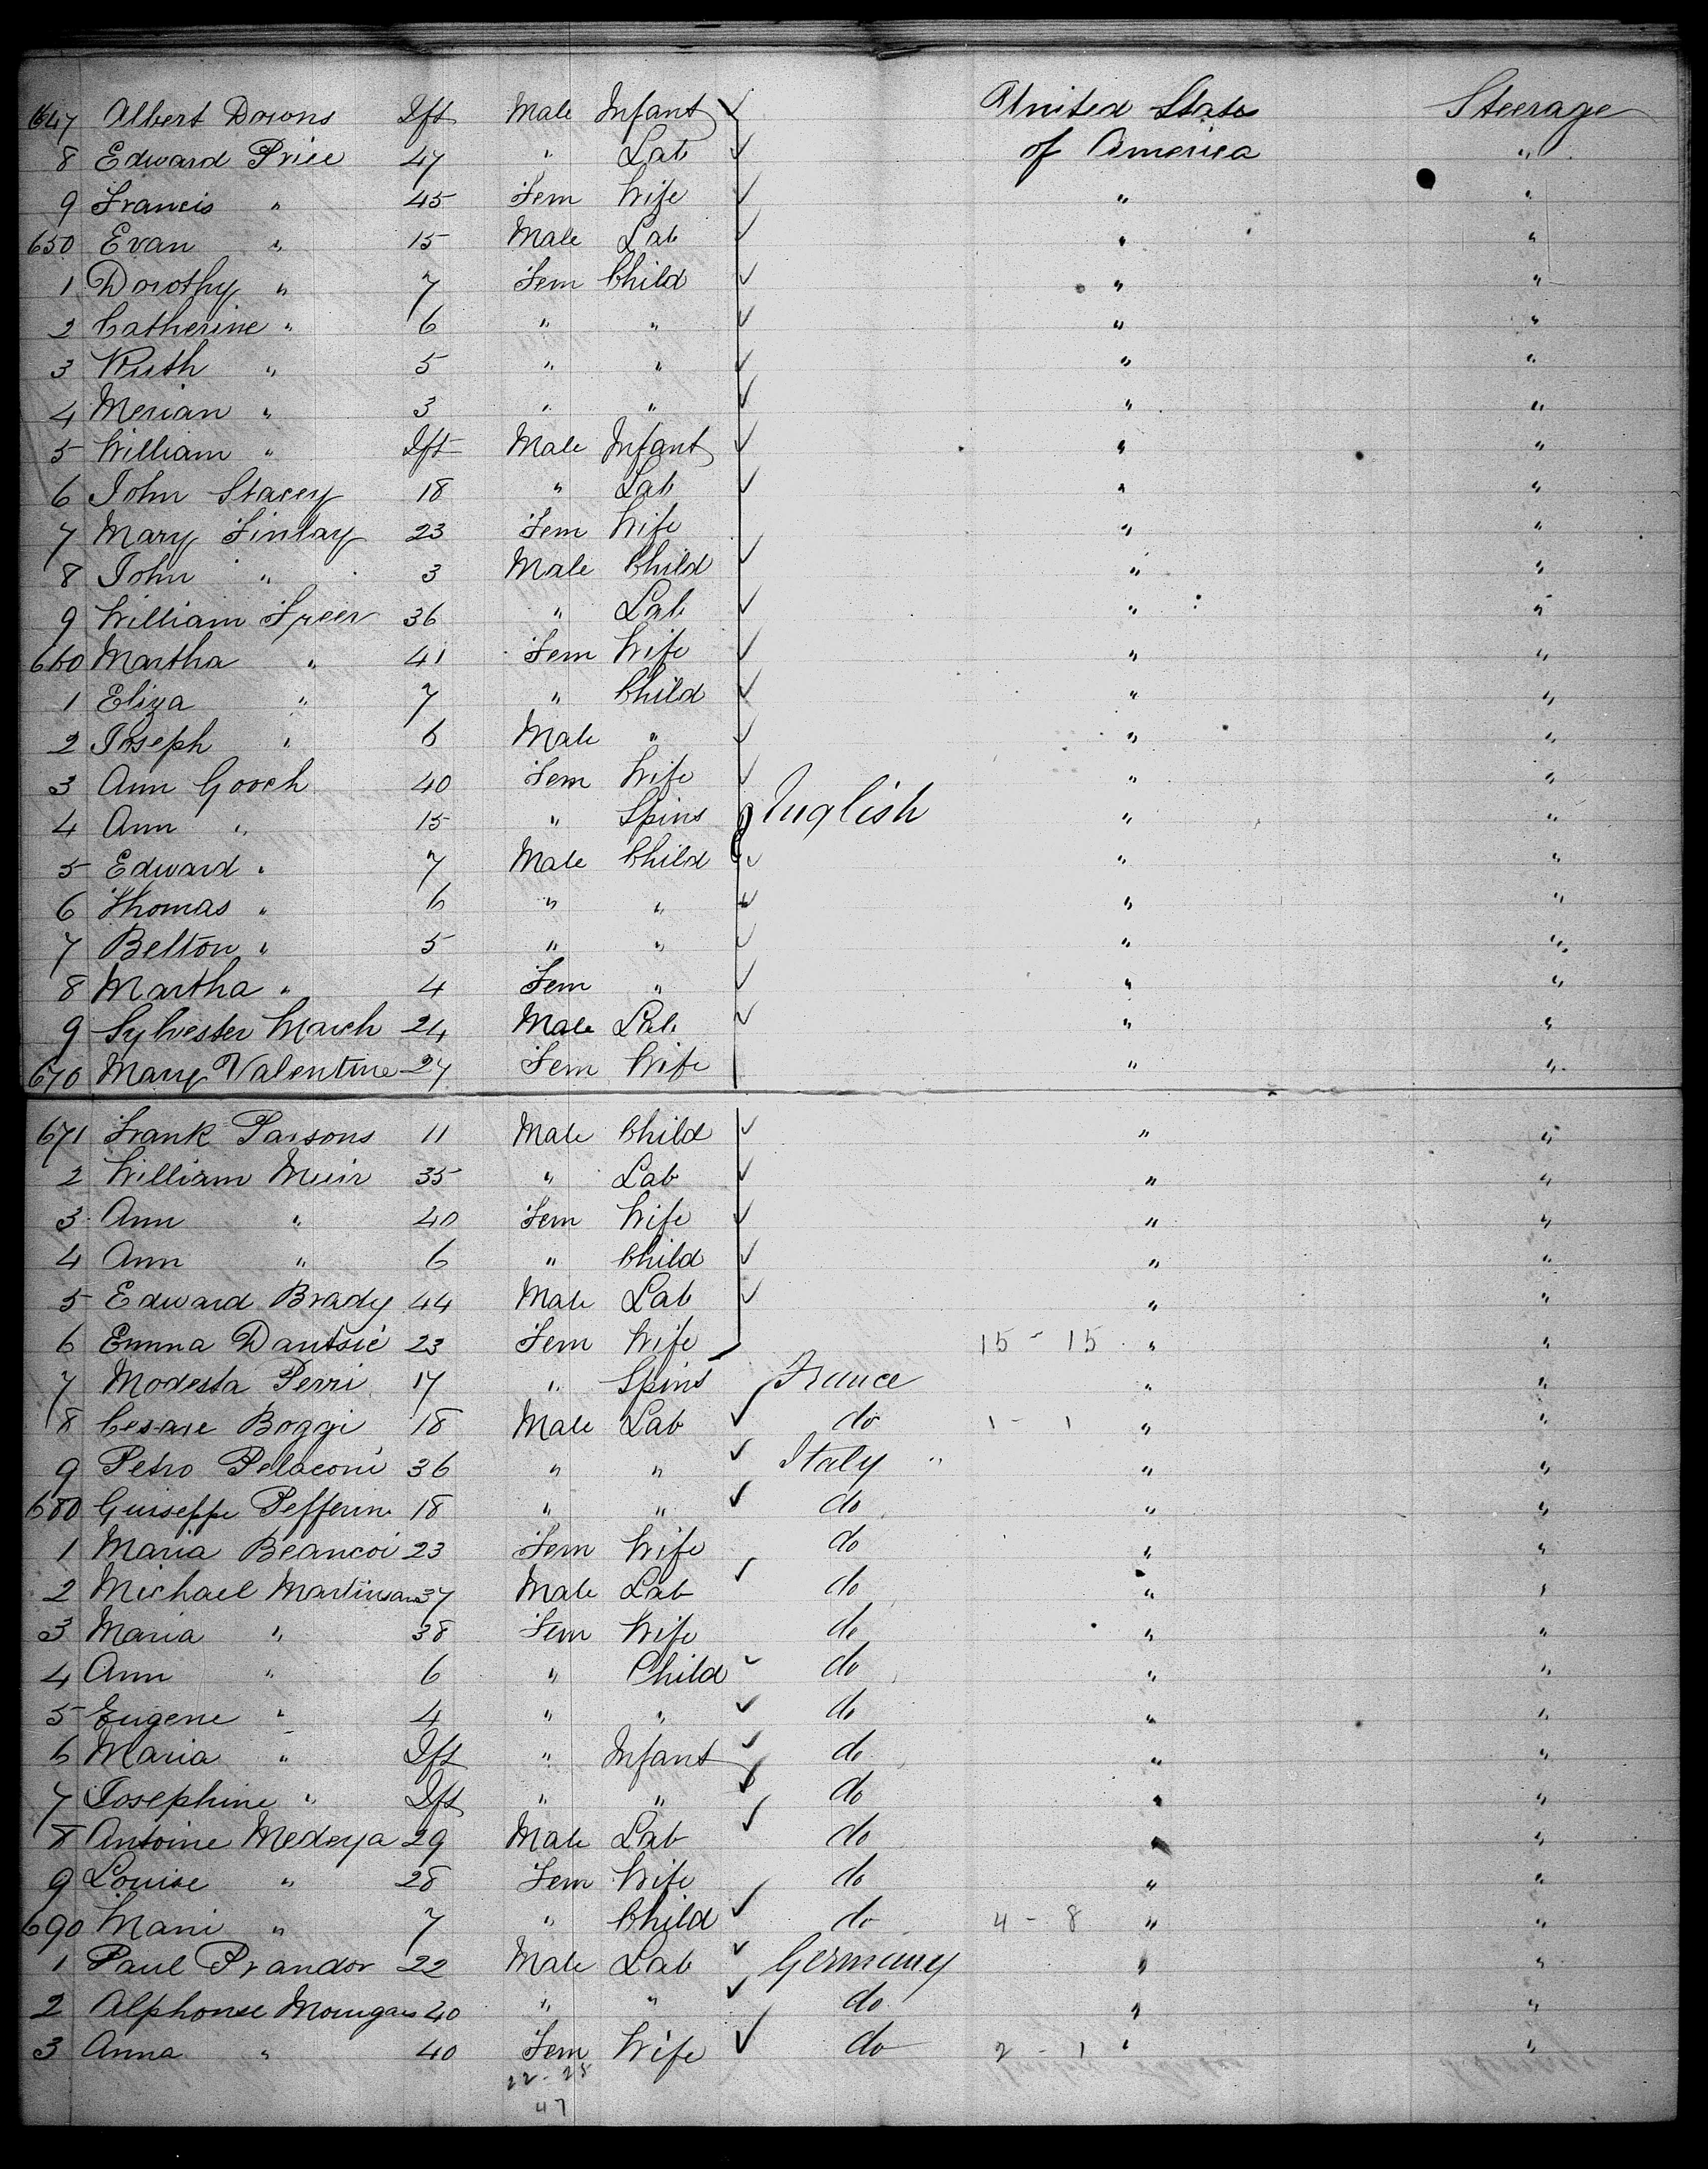 647 Albert Downs Ift Male Infant United States Steerage
8 Edward Price 47 " Lab of America "
9 Francis " 45 Fem Wife " "
650 Evan " 15 Male Lab " "
1 Dorothy " 7 Fem Child " "
2 Catherine " 6 " " " "
3 Ruth " 5 " " " "
4 Merian " 3 " " " "
5 William " Ift Male Infant " "
6 John Stacey 18 " Lab " "
7 Mary Finlay 23 Fem Wife " "
8 John " 3 Male Child " "
9 William Freer 36 " Lab " "
660 Martha " 41 Fem Wife " "
1 Eliza " 7 " Child " "
2 Joseph " 6 Male " " "
3 Ann Gooch 40 Fem Wife " "
4 Ann " 15 " Spins English " "
5 Edward " 7 Male Child " "
6 Thomas " 6 " " " "
7 Belton " 5 " " " "
8 Martha " 4 Fem " " "
9 Sylvester March 24 Male Lab " "
670 Mary Valentine 27 Fem Wife " "
671 Frank Parsons 11 Male Child " "
2 William Muir 35 " Lab " "
3 Ann " 40 Fem Wife " "
4 Ann " 6 " Child " "
5 Edward Brady 44 Male Lab " "
6 Emma Dantsie 23 Fem Wife 15 - 15 " "
7 Modesta Perri 17 " Spins France " "
8 Cesare Boggi 18 Male Lab do 1 - 1 " "
9 Petro Pelaconi 36 " " Italy " " "
680 Guiseppe Pefferin 18 " " do " "
1 Maria Beancoi 23 Fem Wife do " "
2 Michael Martinsan 37 Male Lab do " "
3 Maria " 38 Fem Wife do " "
4 Ann " 6 " Child do " "
5 Eugene " 4 " " do " "
6 Maria " Ift " Infant do " "
7 Josephine " Ift " " do " "
8 Antoine Medeya 29 Male Lab do " "
9 Louise " 28 Fem Wife do " "
690 Mani " 7 " Child do 4 - 8 " "
1 Paul Prandor 22 Male Lab Germany " "
2 Alphonse 40 " " do " "
3 Anna " 40 Fem Wife do 2 - 1 " "
22 - 25
47